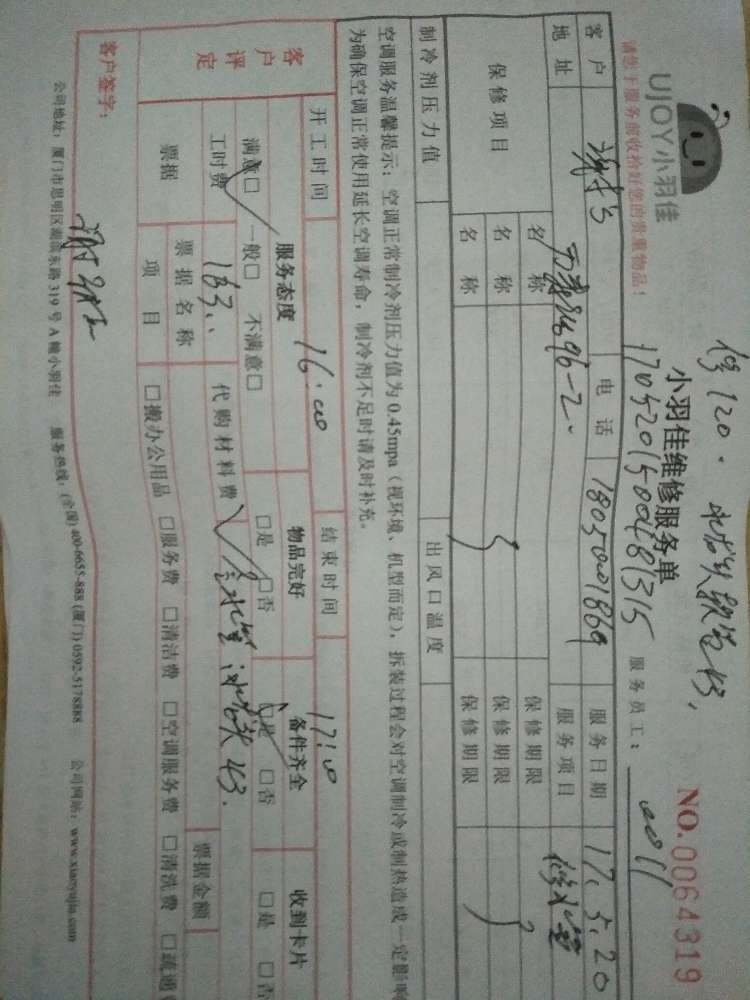 UJOY小羽佳
请您于服务前收拾好您的贵重物品!
小羽佳维修服务单
170520150048 1315
服务员工: 0011
NO.0064319
客户 电话 18050001869 服务日期 17.5.20
地址 96-2. 服务项目 修水管
保修项目 名称 保修期限
名称 保修期限
名称 保修期限
制冷剂压力值 出风口温度
空调服务温馨提示:空调正常制冷剂压力值为0.45mpa(视环境、机型而定),拆装过程会对空调制冷或制热造成一定影响
为确保空调正常使用延长空调寿命,制冷剂不足时请及时补充。
开工时间 16:00 结束时间 17:10
客户评定 服务态度 物品完好 备件齐全 收到卡片
满意□ 一般□ 不满意□ □是 □否 □是 □否 □是 □否
工时费 163.. 代购材料费
票据 票据名称 票据金额
项目 □搬办公用品 □服务费 □清洁费 □空调服务费 □清洗费 □疏通
客户签字:
公司地址:厦门市思明区湖滨东路319号A幢小羽佳 服务热线:(全国)400-6655-888 (厦门) 0592-5178888 公司网站:www.xiaoyujia.com